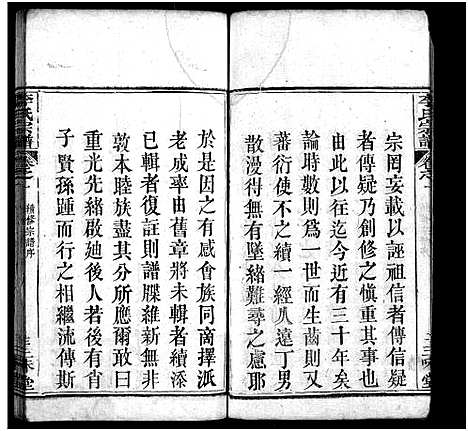 宗罔妄載以誣祖信者傳信疑
者傳疑乃創修之慎重其事也
由此以往迄今近有三十年矣
論時數則為一世而生齒則日
蕃衍使不之續一經人遠丁男
散漫得無有墜緒難尋之慮耶
於是又有感會族同商擇派
老成率由舊章將未輯者續添
已輯者復註則譜牒維新無非
敦本睦族盡其分所應爾耳
重光先緒啟廸後人若者後有
子賢孫踵而行之相繼流傳斯
李氏宗譜
續修宗譜序